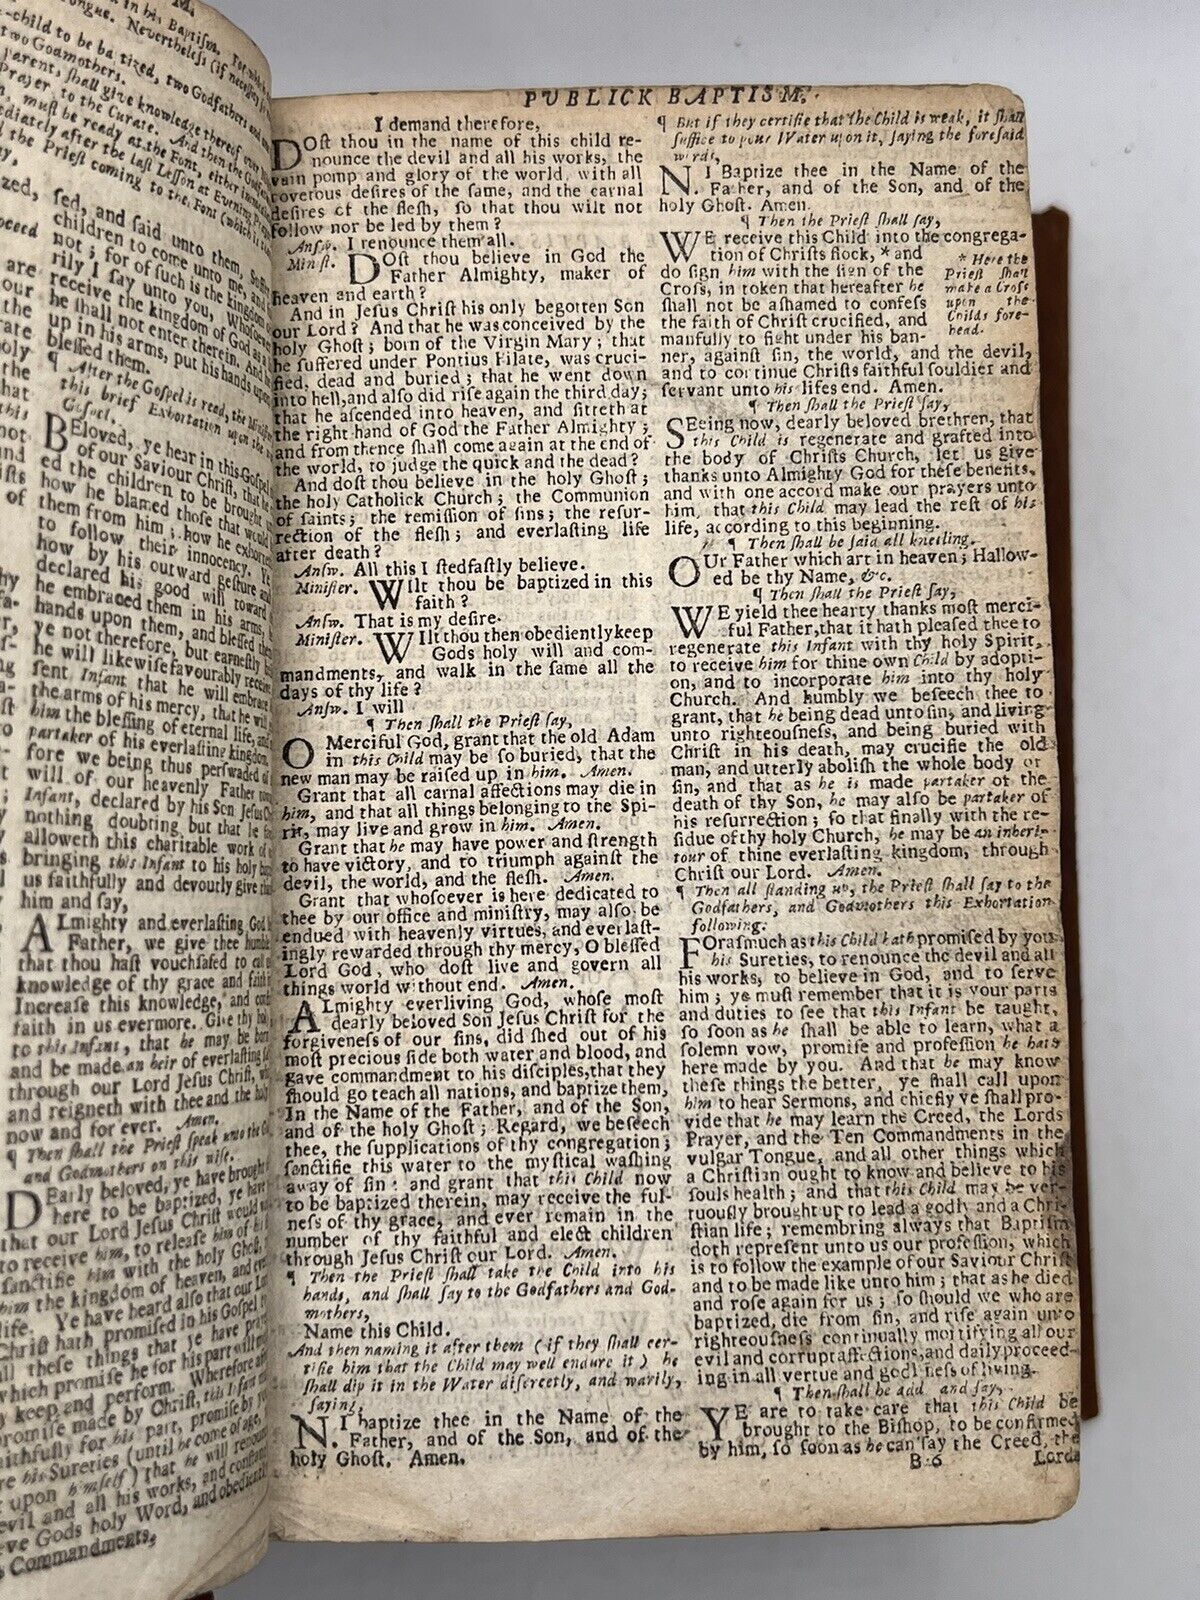 in his Baptiſm. For which
tongue. Nevertheleſs (if neceſſity ſo
child to be baptized, two Godfathers and one
two Godmothers.
parent, ſhall give knowledge thereof over
Prayer, to the Curate. And then the Godfathers
muſt be ready at the Font, either immedi-
diately after the laſt Leſſon at Evening Prayer
the Prieſt coming to the Font (which is then
ſed, and ſaid unto them, Suffer
children to come unto me, and
not; for of ſuch is the kingdom of
rily I ſay unto you, Whoſoever
receive the kingdom of God as a
he ſhall not enter therein. And he
up in his arms, put his hands upon
bleſſed them.
¶ After the Goſpel is read, the Miniſter
this brief Exhortation upon the
Goſpel.
BEloved, ye hear in this Goſpel
of our Saviour Chriſt, that he
ed the children to be brought
how he blamed thoſe that would
them from him; how he exhorted
to follow their innocency. Ye
how by his outward geſture and
declared his good will toward
he embraced them in his arms, he
hands upon them, and bleſſed them
ye not therefore, but earneſtly be
he will likewiſe favourably receive
ſent Infant that he will embrace
the arms of his mercy, that he will
him the bleſſing of eternal life, and
partaker of his everlaſting kingdom.
fore we being thus perſwaded of
will of our heavenly Father toward
Infant, declared by his Son Jeſus Chriſt
nothing doubting but that he favou
alloweth this charitable work of
bringing this Infant to his holy baptiſm
us faithfully and devoutly give thanks
him and ſay,
ALmighty and everlaſting God
Father, we give thee humble
that thou haſt vouchſafed to call us
knowledge of thy grace and faith in
Increaſe this knowledge, and confirm
faith in us evermore. Give thy holy
to this Infant, that he may be born
and be made an heir of everlaſting ſal
through our Lord Jeſus Chriſt, who
and reigneth with thee and the holy
now and for ever. Amen.
¶ Then ſhall the Prieſt ſpeak unto the
and Godmothers on this wiſe.
DEarly beloved, ye have brought
here to be baptized, ye have
that our Lord Jeſus Chriſt would
to receive him, to releaſe him of his
ſanctifie him with the holy Ghoſt,
him the kingdom of heaven, and ever
life. Ye have heard alſo that our Lord
Chriſt hath promiſed in his Goſpel to
all theſe things that ye have prayed
which promiſe he for his part will moſt
keep and perform. Wherefore after
promiſe made by Chriſt, this Infant
faithfully for his part, promiſe by you
his Sureties (until he come of age,
upon himſelf) that he will renounce
evil and all his works, and conſtantly
Gods holy Word, and obediently
Commandments.
PUBLICK BAPTISM.
I demand therefore,
DOſt thou in the name of this child re-
nounce the devil and all his works, the
vain pomp and glory of the world, with all
coverous deſires of the ſame, and the carnal
deſires of the fleſh, ſo that thou wilt not
follow nor be led by them?
Anſw. I renounce them all.
Miniſt. DOſt thou believe in God the
Father Almighty, maker of
heaven and earth?
And in Jeſus Chriſt his only begotten Son
our Lord? And that he was conceived by the
holy Ghoſt; born of the Virgin Mary; that
he ſuffered under Pontius Pilate, was cruci-
fied, dead and buried; that he went down
into hell, and alſo did riſe again the third day;
that he aſcended into heaven, and ſitteth at
the right hand of God the Father Almighty;
and from thence ſhall come again at the end of
the world, to judge the quick and the dead?
And doſt thou believe in the holy Ghoſt;
the holy Catholick Church; the Communion
of ſaints; the remiſſion of ſins; the reſur-
rection of the fleſh; and everlaſting life
after death?
Anſw. All this I ſtedfaſtly believe.
Miniſter. WIlt thou be baptized in this
faith?
Anſw. That is my deſire.
Miniſter. WIlt thou then obediently keep
Gods holy will and com-
mandments, and walk in the ſame all the
days of thy life?
Anſw. I will
¶ Then ſhall the Prieſt ſay,
O Merciful God, grant that the old Adam
in this Child may be ſo buried, that the
new man may be raiſed up in him. Amen.
Grant that all carnal affections may die in
him, and that all things belonging to the Spi-
rit, may live and grow in him. Amen.
Grant that he may have power and ſtrength
to have victory, and to triumph againſt the
devil, the world, and the fleſh. Amen.
Grant that whoſoever is here dedicated to
thee by our office and miniſtry, may alſo be
endued with heavenly virtues, and everlaſt-
ingly rewarded through thy mercy, O bleſſed
Lord God, who doſt live and govern all
things world without end. Amen.
ALmighty everliving God, whoſe moſt
dearly beloved Son Jeſus Chriſt for the
forgiveneſs of our ſins, did ſhed out of his
moſt precious ſide both water and blood, and
gave commandment to his diſciples, that they
ſhould go teach all nations, and baptize them,
In the Name of the Father, and of the Son,
and of the holy Ghoſt; Regard, we beſeech
thee, the ſupplications of thy congregation;
ſanctifie this water to the myſtical waſhing
away of ſin: and grant that this Child now
to be baptized therein, may receive the ful-
neſs of thy grace, and ever remain in the
number of thy faithful and elect children
through Jeſus Chriſt our Lord. Amen.
¶ Then the Prieſt ſhall take the Child into his
hands, and ſhall ſay to the Godfathers and God-
mothers,
Name this Child.
And then naming it after them (if they ſhall cer-
tifie him that the Child may well endure it) he
ſhall dip it in the Water diſcreetly, and warily,
ſaying,
N. I baptize thee in the Name of the
Father, and of the Son, and of the
holy Ghoſt. Amen.
¶ But if they certifie that the Child is weak, it ſhall
ſuffice to pour Water upon it, ſaying the foreſaid
words,
N. I Baptize thee in the Name of the
Father, and of the Son, and of the
holy Ghoſt. Amen.
¶ Then the Prieſt ſhall ſay,
WE receive this Child into the congrega-
tion of Chriſts flock, * and
do ſign him with the ſign of the
Croſs, in token that hereafter he
ſhall not be aſhamed to confeſs
the faith of Chriſt crucified, and
manfully to fight under his ban-
ner, againſt ſin, the world, and the devil,
and to continue Chriſts faithful ſouldier and
ſervant unto his lifes end. Amen.
* Here the
Prieſt ſhall
make a Croſs
upon the
Childs fore-
head.
¶ Then ſhall the Prieſt ſay,
SEeing now, dearly beloved brethren, that
this Child is regenerate and grafted into
the body of Chriſts Church, let us give
thanks unto Almighty God for theſe benefits,
and with one accord make our prayers unto
him, that this Child may lead the reſt of his
life, according to this beginning.
¶ Then ſhall be ſaid all kneeling.
OUr Father which art in heaven; Hallow-
ed be thy Name, &c.
¶ Then ſhall the Prieſt ſay,
WE yield thee hearty thanks moſt merci-
ful Father, that it hath pleaſed thee to
regenerate this Infant with thy holy Spirit,
to receive him for thine own Child by adopti-
on, and to incorporate him into thy holy
Church. And humbly we beſeech thee to
grant, that he being dead unto ſin, and living
unto righteouſneſs, and being buried with
Chriſt in his death, may crucifie the old
man, and utterly aboliſh the whole body of
ſin, and that as he is made partaker of the
death of thy Son, he may alſo be partaker of
his reſurrection; ſo that finally with the re-
ſidue of thy holy Church, he may be an inheri-
tour of thine everlaſting kingdom, through
Chriſt our Lord. Amen.
¶ Then all ſtanding up, the Prieſt ſhall ſay to the
Godfathers, and Godmothers this Exhortation
following.
FOraſmuch as this Child hath promiſed by you
his Sureties, to renounce the devil and all
his works, to believe in God, and to ſerve
him; ye muſt remember that it is your parts
and duties to ſee that this Infant be taught,
ſo ſoon as he ſhall be able to learn, what a
ſolemn vow, promiſe and profeſſion he hath
here made by you. And that he may know
theſe things the better, ye ſhall call upon
him to hear Sermons, and chiefly ye ſhall pro-
vide that he may learn the Creed, the Lords
Prayer, and the Ten Commandments in the
vulgar Tongue, and all other things which
a Chriſtian ought to know and believe to his
ſouls health; and that this Child may be ver-
tuouſly brought up to lead a godly and a Chri-
ſtian life; remembring always that Baptiſm
doth repreſent unto us our profeſſion, which
is to follow the example of our Saviour Chriſt
and to be made like unto him; that as he died
and roſe again for us; ſo ſhould we who are
baptized, die from ſin, and riſe again unto
righteouſneſs continually mortifying all our
evil and corrupt affections, and daily proceed-
ing in all vertue and godlineſs of living.
¶ Then ſhall he add and ſay,
YE are to take care that this Child be
brought to the Biſhop, to be confirmed
by him, ſo ſoon as he can ſay the Creed, the
B 6
Lords